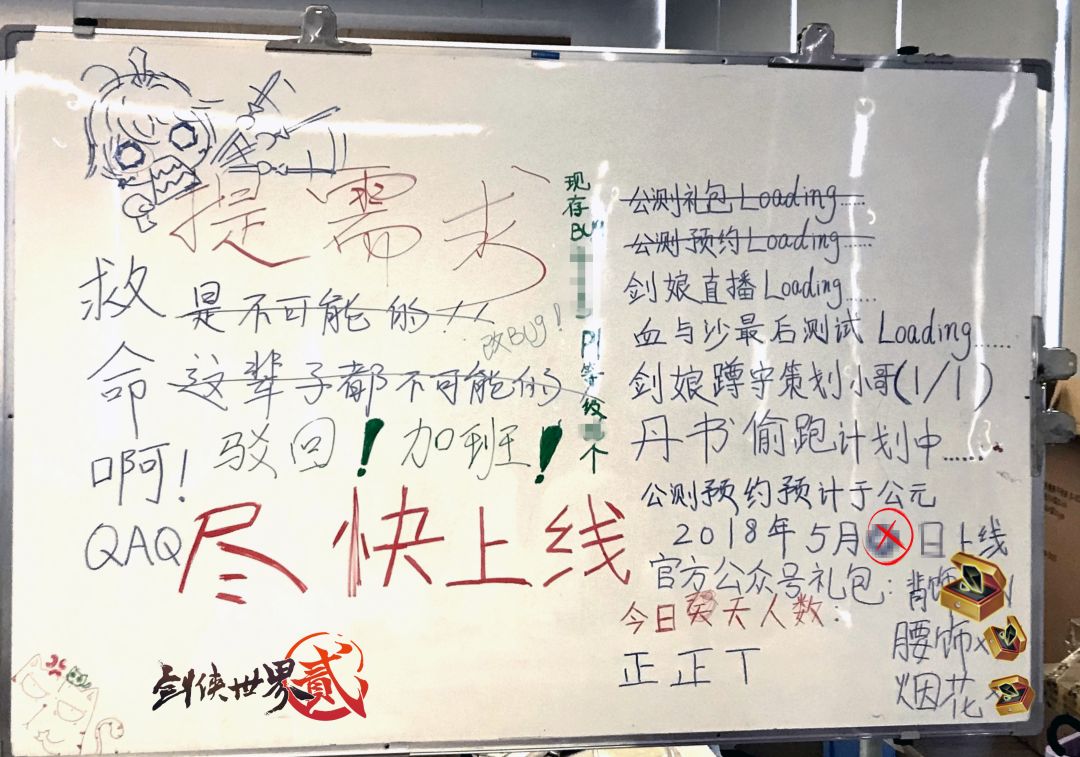 提需求
救命啊!
QAQ
是不可能的!!
改BUG!
这辈子都不可能的
驳回!加班!
尽快上线
剑侠世界
貳
现存BUG
P1等级
个
公测礼包Loading......
公测预约Loading......
剑娘直播Loading......
血与沙最后测试 Loading......
剑娘蹲守策划小哥(1/1)
丹书偷跑计划中......
公测预约预计于公元
2018年5月 日上线
官方公众号礼包:背饰
今日 天人数:
腰饰x
正正丅
烟花x